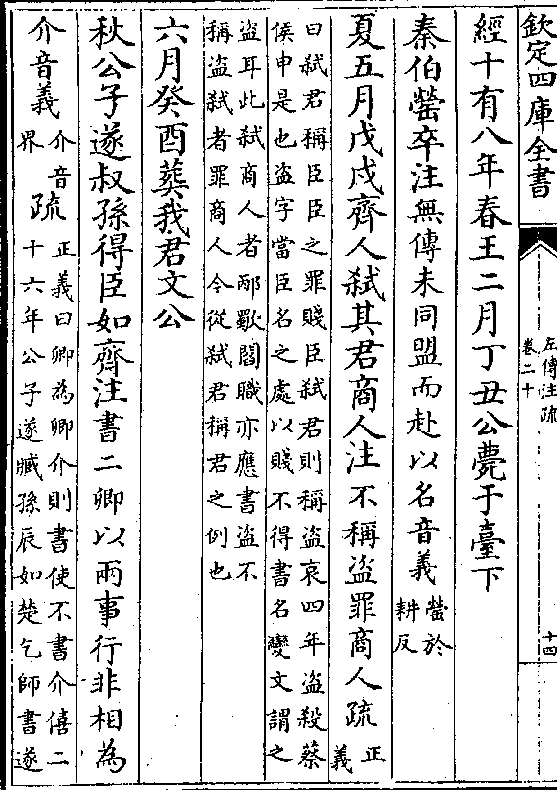 欽定四庫全書
左傳注疏
卷二十
十四
經十有八年春王二月丁丑公薨于臺下
秦伯罃卒注無傳未同盟而赴以名音義罃於
耕反
夏五月戊戌齊人弑其君商人注不稱盜罪商人疏正
義
曰弑君稱臣臣之罪賤臣弑君則稱盜哀四年盜殺蔡
侯申是也盜字當臣名之處以賤不得書名變文謂之
盜耳此弑商人者邴歜閻職亦應書盜不
稱盜弑者罪商人令從弑君稱君之例也
六月癸酉葬我君文公
秋公子遂叔孫得臣如齊注書二卿以兩事行非相為
介音義介音
界疏正義曰卿為卿介則書使不書介僖二
十六年公子遂臧孫辰如楚乞師書遂